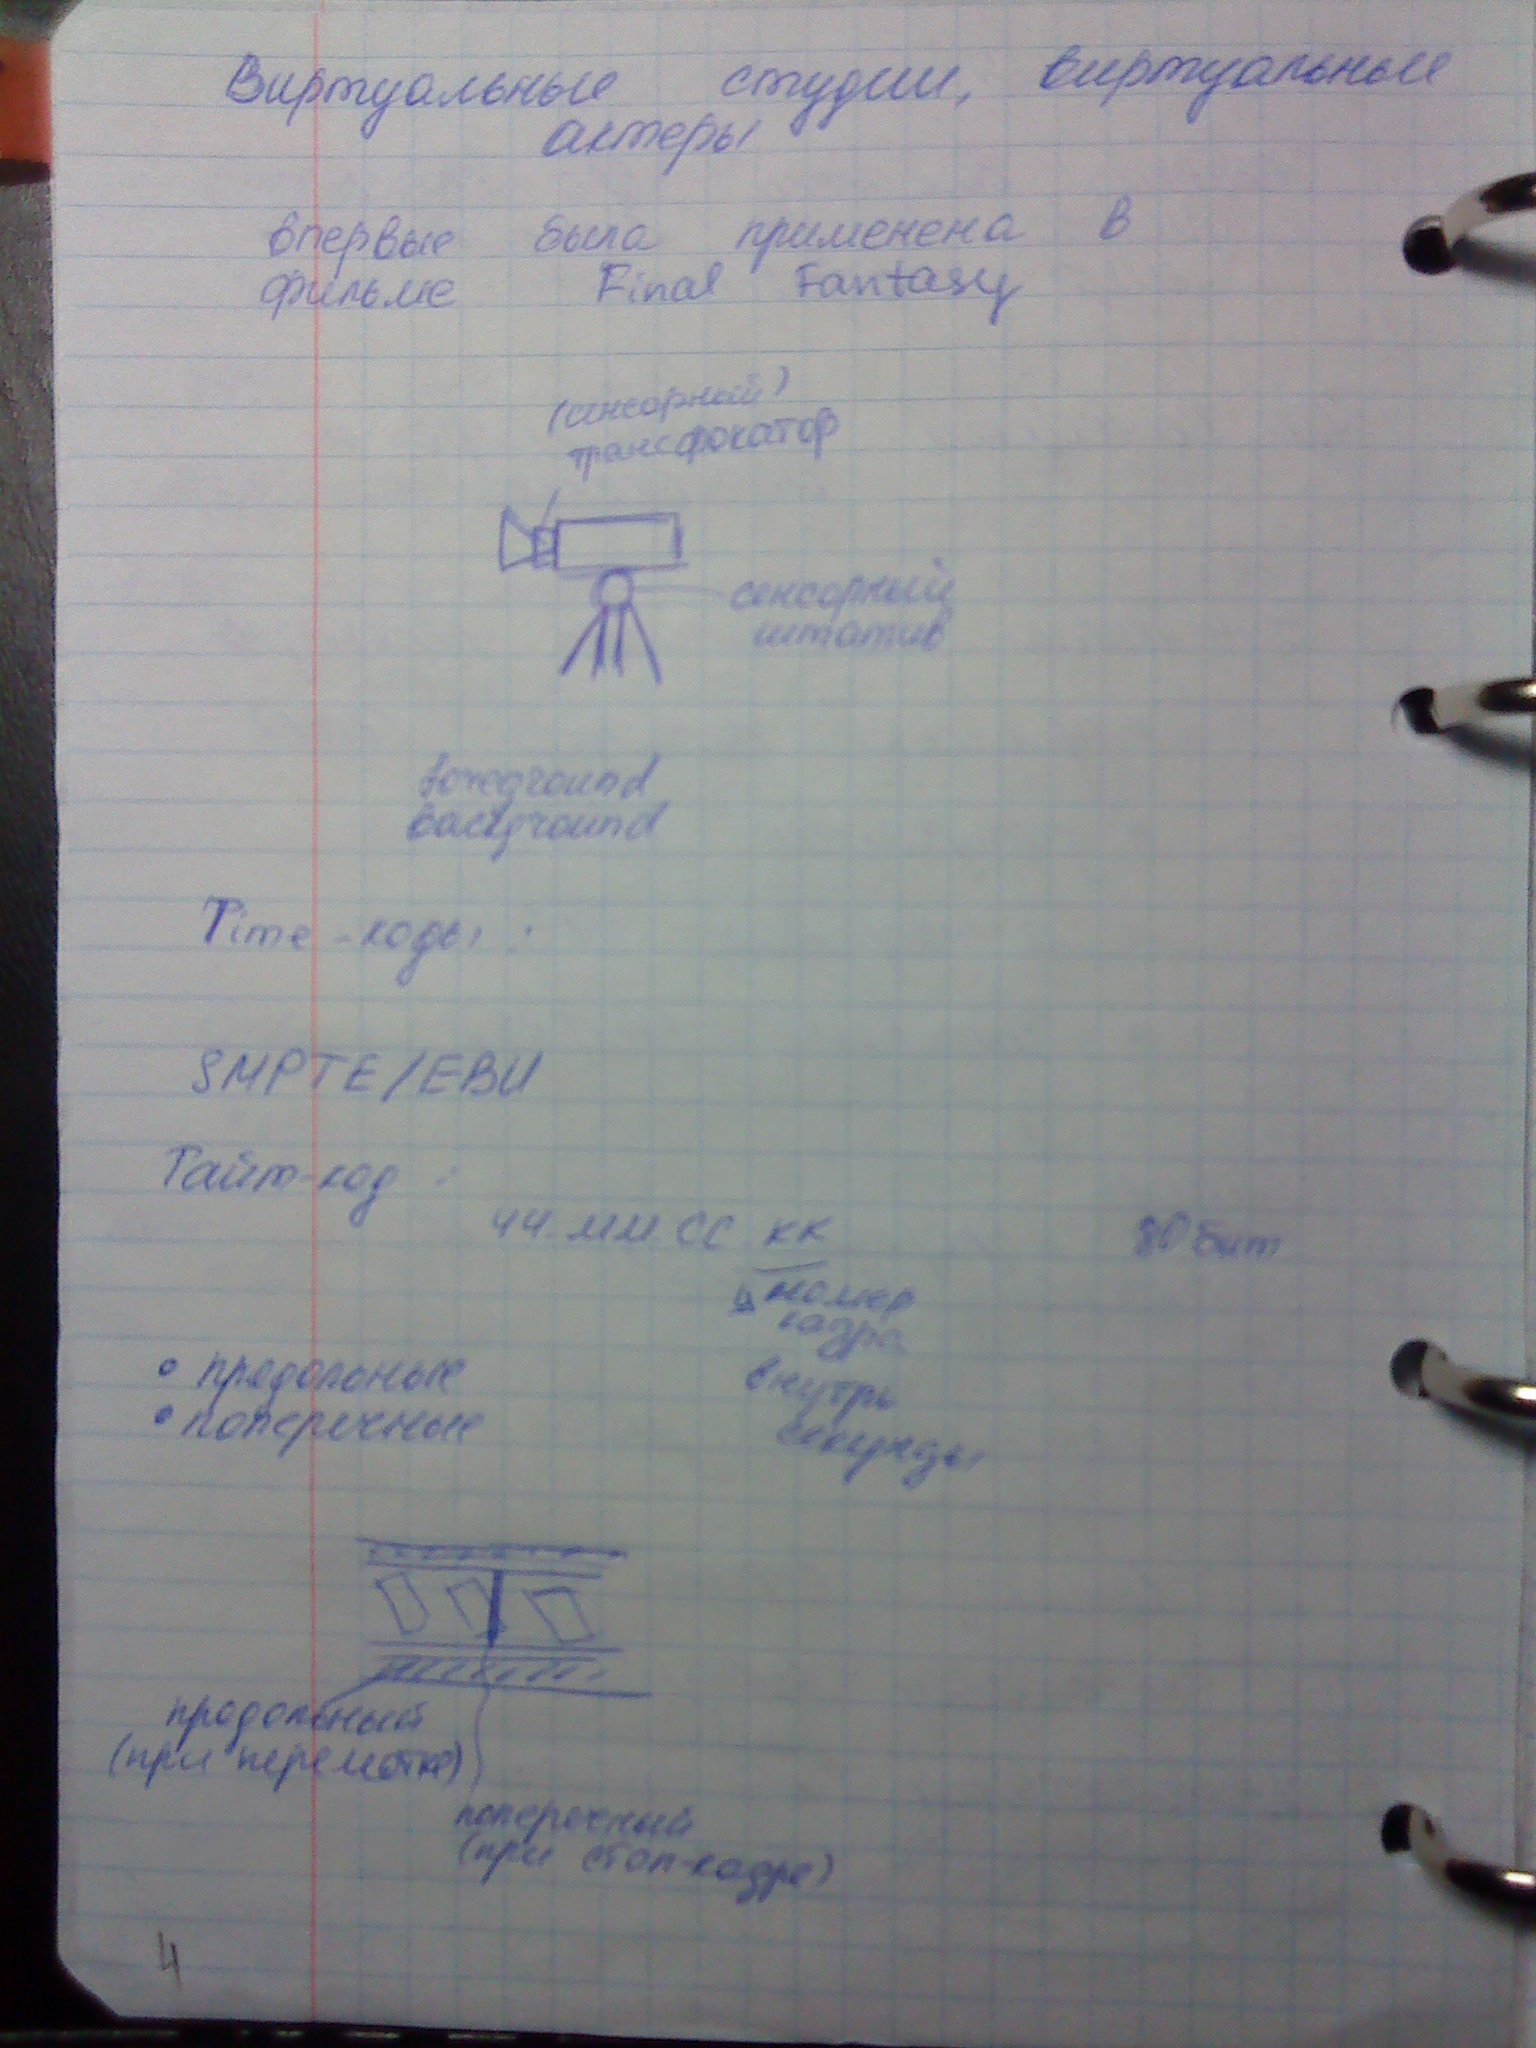 Виртуальные студии, виртуальные
актеры
впервые была применена в
фильме Final Fantasy
(сенсорный)
трансфокатор
сенсорный
штатив
foreground
background
Time-коды:
SMPTE/EBU
Тайм-код:
чч мм СС КК 80 бит
номер
кадра
внутри
секунды
• продольные
• поперечные
продольный
(при перемотке)
поперечный
(при стоп-кадре)
4